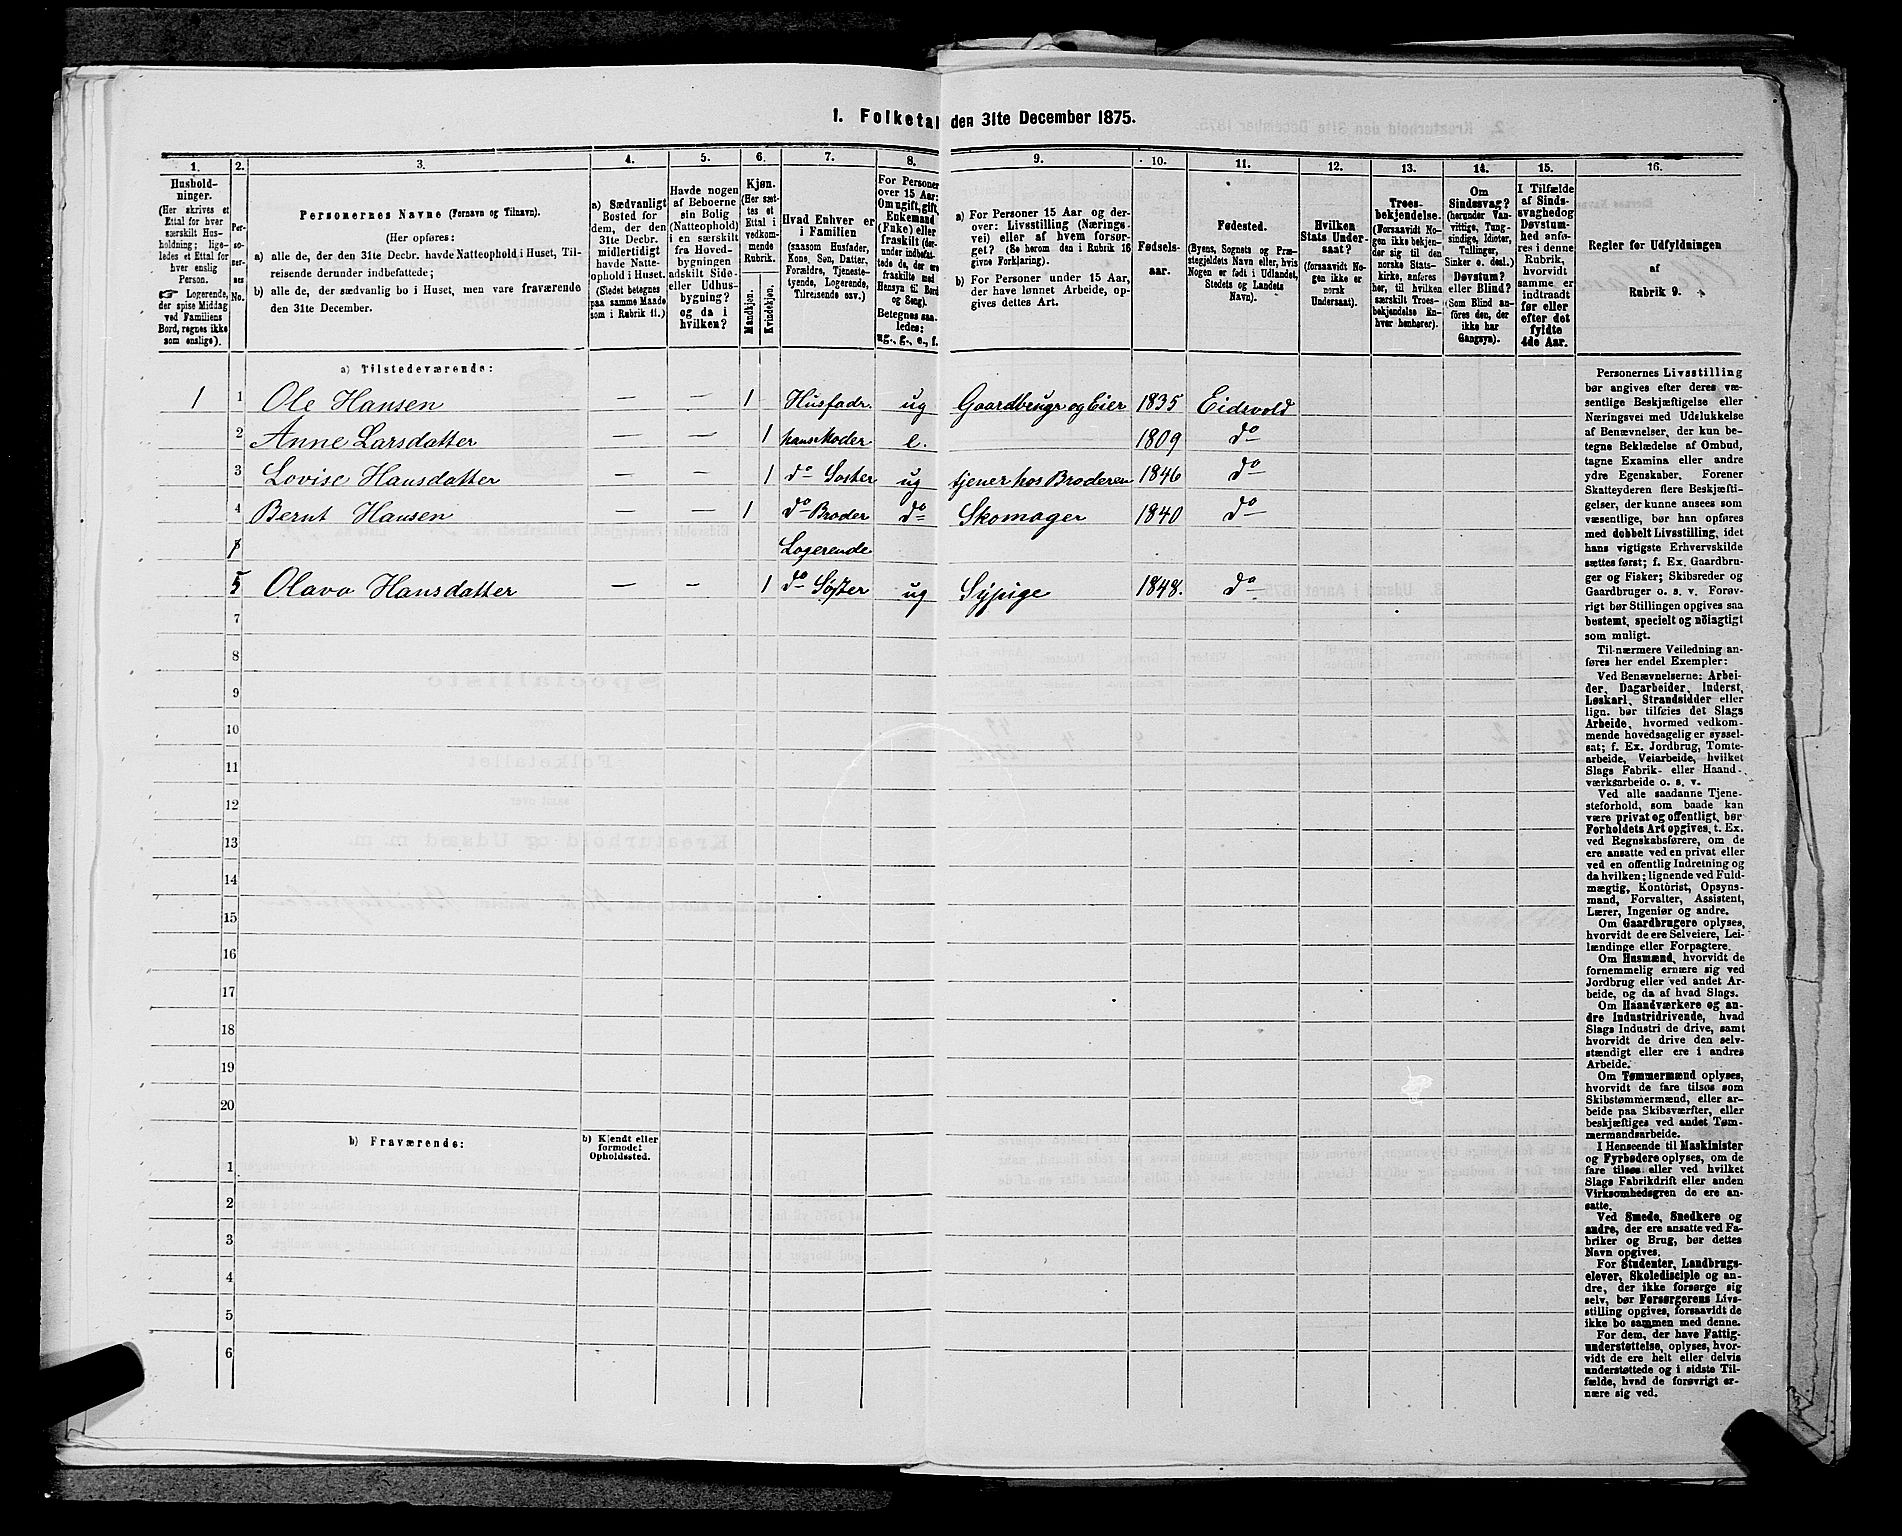 1. Folketal den 31te December 1875.
1. 2. 3. 4. 5. 6. 7. 8. 9. 10. 11. 12. 13. 14. 15. 16.
Hushold-
ninger.
(Her skrives et
Ettal for hver
særskilt Hus-
holdning; lige-
ledes et Ettal for
hver enslig
Person.
☞ Logerende,
der spise Middag
ved Familiens
Bord, regnes ikke
som enslige).
Per-
so-
ner-
nes
No.
Personernes Navne (Fornavn og Tilnavn).
(Her opføres:
a) alle de, der den 31te Decbr. havde Natteophold i Huset, Til-
reisende derunder indbefattede;
b) alle de, der sædvanlig bo i Huset, men vare fraværende
den 31te December.
a) Sædvanligt
Bosted for
dem, der den
31te Decbr.
midlertidigt
havde Natte-
ophold i Huset.
(Stedet betegnes
paa samme Maade
som i Rubrik 11.)
Havde nogen
af Beboerne
sin Bolig
(Natteophold)
i en særskilt
fra Hoved-
bygningen
adskilt Side-
eller Udhus-
bygning?
og da i
hvilken?
Kjøn.
(Her sæt-
tes et
Ettal i
vedkom-
mende
Rubrik.
Mandkjøn.
Kvindekjøn.
Hvad Enhver er
i Familien
(saasom Husfader,
Kone, Søn, Datter,
Forældre, Tjeneste-
tyende, Logerende,
Tilreisende osv.)
For Personer
over 15 Aar:
Om ugift, gift,
Enkemand
(Enke) eller
fraskilt (der-
under indbefat-
tede de, der ere
fraskilte med
Hensyn til Bord
og Seng).
Betegnes saa-
ledes:
ug., g., e., f.
a) For Personer 15 Aar og der-
over: Livsstilling (Nærings-
vei) eller af hvem forsør-
get? (Se herom den i Rubrik 16
givne Forklaring).
b) For Personer under 15 Aar,
der have lønnet Arbeide, op-
gives dettes Art.
Fødsels-
aar.
Fødested.
(Byens, Sognets og Præ-
stegjeldets Navn eller, hvis
Nogen er født i Udlandet,
Stedets og Landets
Navn).
Hvilken
Stats Under-
saat?
(forsaavidt No-
gen ikke er
norsk
Undersaat).
Troes-
bekjendelse.
(Forsaavidt No-
gen ikke bekjen-
der sig til den
norske Stats-
kirke, anføres
her, til hvilken
særskilt Troes-
bekjendelse En-
hver henhører).
Om
Sindssvag?
(herunder Van-
vittige, Tung-
sindige, Idioter,
Tullinger,
Sinker o. desl.)
Døvstum?
eller Blind?
(Som Blind an-
føres den, der
ikke har
Gangsyn).
I Tilfælde
af Sinds-
svaghed og
Døvstum-
hed anfø-
res i denne
Rubrik,
hvorvidt
samme er
indtraadt
før eller
efter det
fyldte
4de Aar.
Regler for Udfyldningen
af
Rubrik 9.
a) Tilstedeværende:
1 1 Ole Hansen — — 1 Husfadr. ug Gaardbrugr og Eier 1835 Eidsvold
2 Anne Larsdatter — — 1 hans Moder e. 1809 do
3 Lovise Hansdatter — — 1 do Søster ug tjener hos Broderen 1846 do
4 Bernt Hansen — — 1 do Broder do Skomager 1840 do
Logerende
5 Olava Hansdatter — — 1 do Søster ug Sypige 1848. do
7
8
9
10
11
12
13
14
15
16
17
18
19
20
b) Fraværende:
b) Kjendt eller
formodet
Opholdssted.
1
2
3
4
5
6
Personernes Livsstilling
bør angives efter deres væ-
sentlige Beskjæftigelse eller
Næringsvei med Udelukkelse
af Benævnelser, der kun be-
tegne Beklædelse af Ombud,
tagne Examina eller andre
ydre Egenskaber. Forener
Skatteyderen flere Beskjæfti-
gelser, der kunne ansees som
væsentlige, bør han opføres
med dobbelt Livsstilling, idet
hans vigtigste Erhvervskilde
sættes først; f. Ex. Gaardbru-
ger og Fisker; Skibsreder og
Gaardbruger o. s. v. Forøv-
rigt bør Stillingen opgives saa
bestemt, specielt og nøiagtigt
som muligt.
Til nærmere Veiledning an-
føres her endel Exempler:
Ved Benævnelserne: Arbei-
der, Dagarbeider, Inderst,
Løskarl, Strandsidder eller
lign. bør tilføies det Slags
Arbeide, hvormed vedkom-
mende hovedsagelig er syssel-
sat; f. Ex. Jordbrug, Tomte-
arbeide, Veiarbeide, hvilket
Slags Fabrik- eller Haand-
værksarbeide o. s. v.
Ved alle saadanne Tjene-
steforhold, som baade kan
være privat og offentligt, bør
Forholdets Art opgives, t. Ex.
ved Regnskabsførere, om de
ere ansatte ved en privat eller
ved en offentlig Indretning og
da hvilken; lignende ved Fuld-
mægtig, Kontorist, Opsyns-
mand, Forvalter, Assistent,
Lærer, Ingeniør og andre.
Om Gaardbrugere oplyses,
hvorvidt de ere Selveiere, Lei-
lændinge eller Forpagtere.
Om Husmænd, hvorvidt de
fornemmelig ernære sig ved
Jordbrug eller ved andet Ar-
beide, og da af hvad Slags.
Om Haandværkere og an-
dre Industridrivende, hvad
Slags Industri de drive, samt
hvorvidt de drive den selv-
stændigt eller ere i andres
Arbeide.
Om Tømmermænd oplyses,
hvorvidt de fare tilsøs som
Skibstømmermænd, eller ar-
beide paa Skibsværfter, eller
beskjæftiges ved andet Tøm-
mermandsarbeide.
I Henseende til Maskinister
og Fyrbødere oplyses, om de
fare tilsøs eller ved hvilket
Slags Fabrikdrift eller anden
Virksomhedsgren de ere an-
satte.
Ved Smede, Snedkere og
andre, der ere ansatte ved Fa-
briker og Brug, bør dettes
Navn opgives.
For Studenter, Landbrugs-
elever, Skoledisciple og an-
dre, der ikke forsørge sig
selv, bør Forsørgerens Livs-
stilling opgives, forsaavidt de
ikke bo sammen med denne.
For dem, der have Fattig-
understøttelse, oplyses, hvor-
vidt de ere helt eller delvis
understøttede og i sidste Til-
fælde, hvad de forøvrigt er-
nære sig ved.